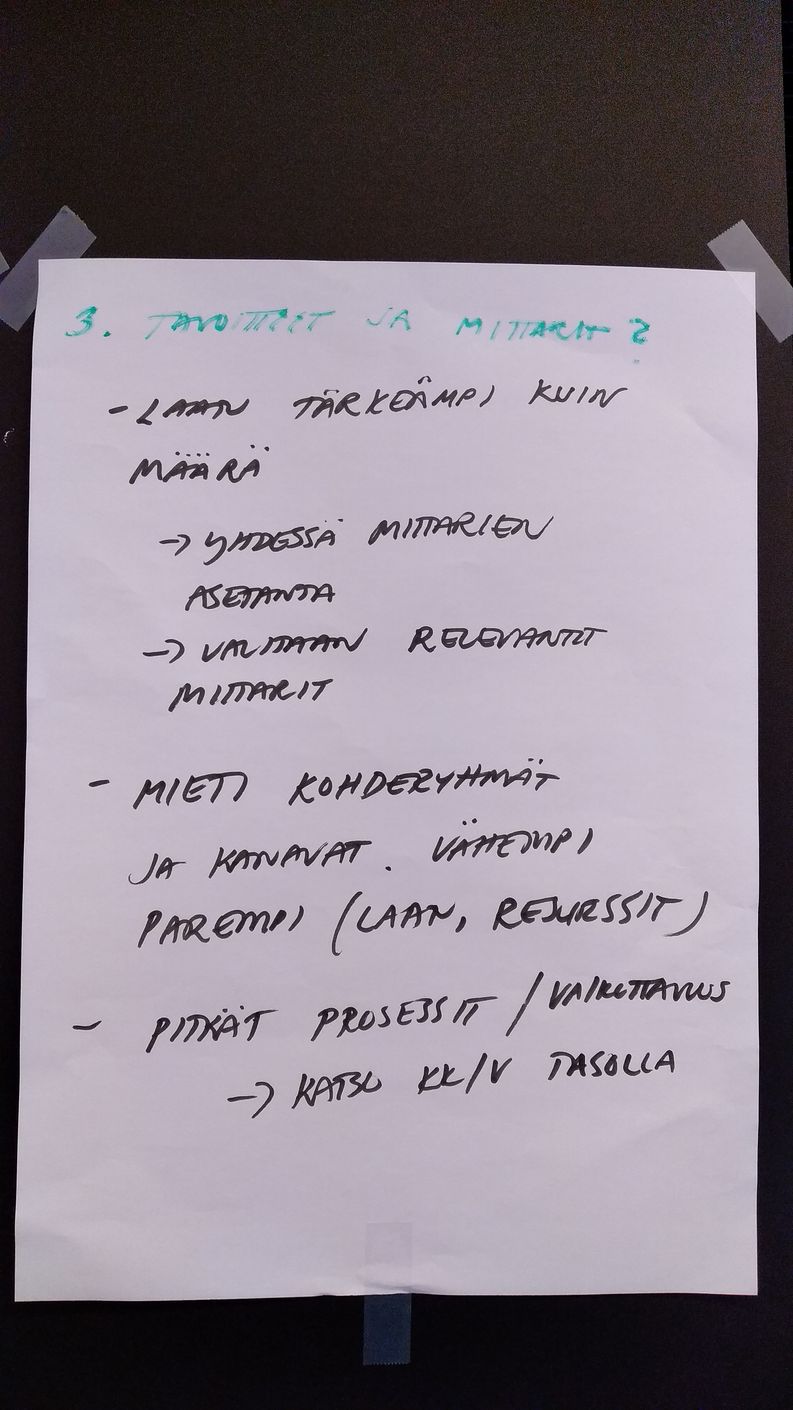 3. TAVOITTEET JA MITTARIT?
- LAAN TÄRKEÄMPI KUIN
MÄÄRÄ
→ YHDESSÄ MITTARIEN
ASETANTA
→ VALITAAN RELEVANTIT
MITTARIT
- MIETI KOHDERYHMÄT
JA KANAVAT. VÄHEMPI
PAREMPI (LAAN, RESURSSIT)
- PITKÄT PROSESSIT / VAIKUTTAVUUS
→ KATSO KK/V TASOLLA